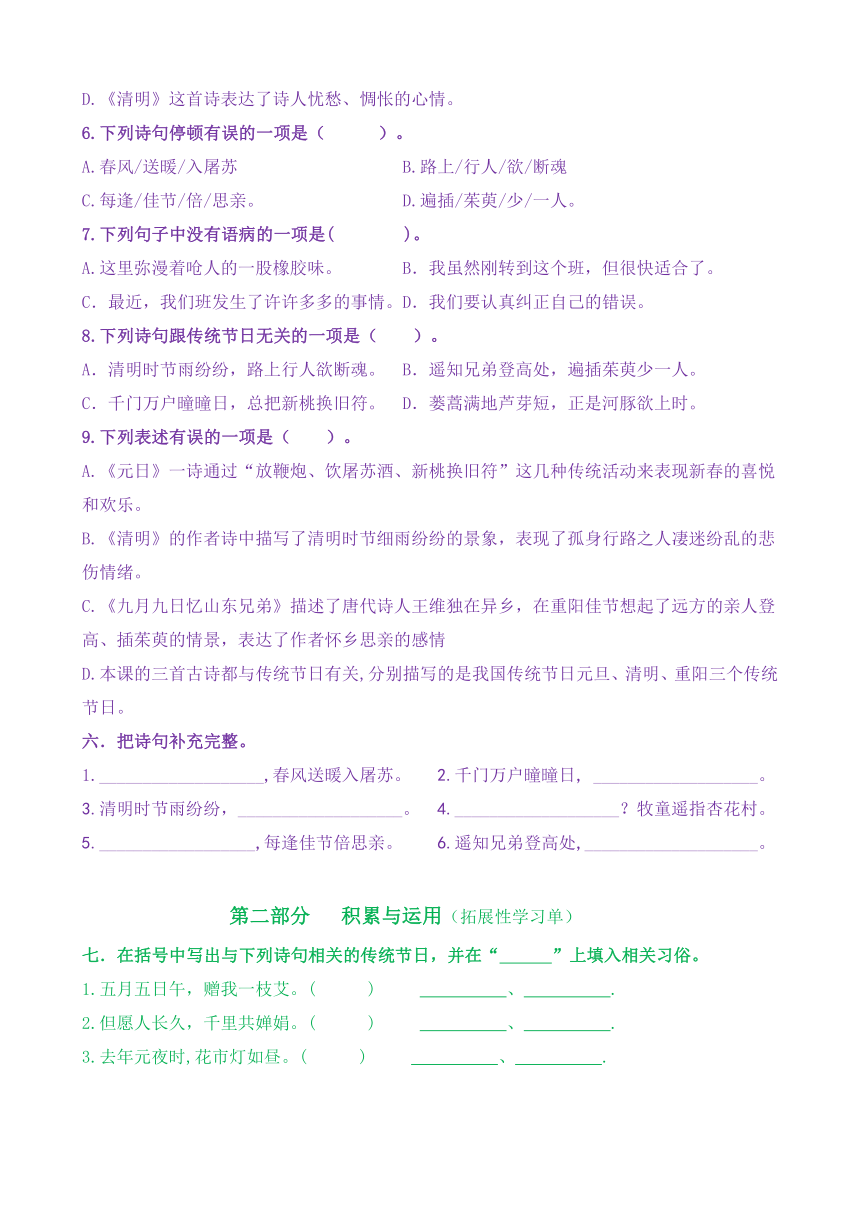 D.《清明》这首诗表达了诗人忧愁、惆怅的心情。
6.下列诗句停顿有误的一项是（　　　）。
A.春风/送暖/入屠苏　　B.路上/行人/欲/断魂
C.每逢/佳节/倍/思亲。　　D.遍插/茱萸/少/一人。
7.下列句子中没有语病的一项是(　　　)。
A.这里弥漫着呛人的一股橡胶味。　　B．我虽然刚转到这个班，但很快适合了。
C．最近，我们班发生了许许多多的事情。D．我们要认真纠正自己的错误。
8.下列诗句跟传统节日无关的一项是（　　）。
A．清明时节雨纷纷，路上行人欲断魂。　B．遥知兄弟登高处，遍插茱萸少一人。
C．千门万户曈曈日，总把新桃换旧符。　D．蒌蒿满地芦芽短，正是河豚欲上时。
9.下列表述有误的一项是（　　）。
A.《元日》一诗通过“放鞭炮、饮屠苏酒、新桃换旧符”这几种传统活动来表现新春的喜悦
和欢乐。
B.《清明》的作者诗中描写了清明时节细雨纷纷的景象，表现了孤身行路之人凄迷纷乱的悲
伤情绪。
C.《九月九日忆山东兄弟》描述了唐代诗人王维独在异乡，在重阳佳节想起了远方的亲人登
高、插茱萸的情景，表达了作者怀乡思亲的感情
D.本课的三首古诗都与传统节日有关,分别描写的是我国传统节日元旦、清明、重阳三个传统
节日。
六．把诗句补充完整。
1.___________________,春风送暖入屠苏。　2.千门万户曈曈日, ___________________。
3.清明时节雨纷纷，___________________。　4.___________________？牧童遥指杏花村。
5.__________________,每逢佳节倍思亲。　6.遥知兄弟登高处,____________________。
第二部分　积累与运用（拓展性学习单）
七．在括号中写出与下列诗句相关的传统节日，并在“______”上填入相关习俗。
1.五月五日午，赠我一枝艾。(　　　)　　__________、__________.
2.但愿人长久，千里共婵娟。(　　　)　　__________、__________.
3.去年元夜时,花市灯如昼。(　　　)　　__________、__________.